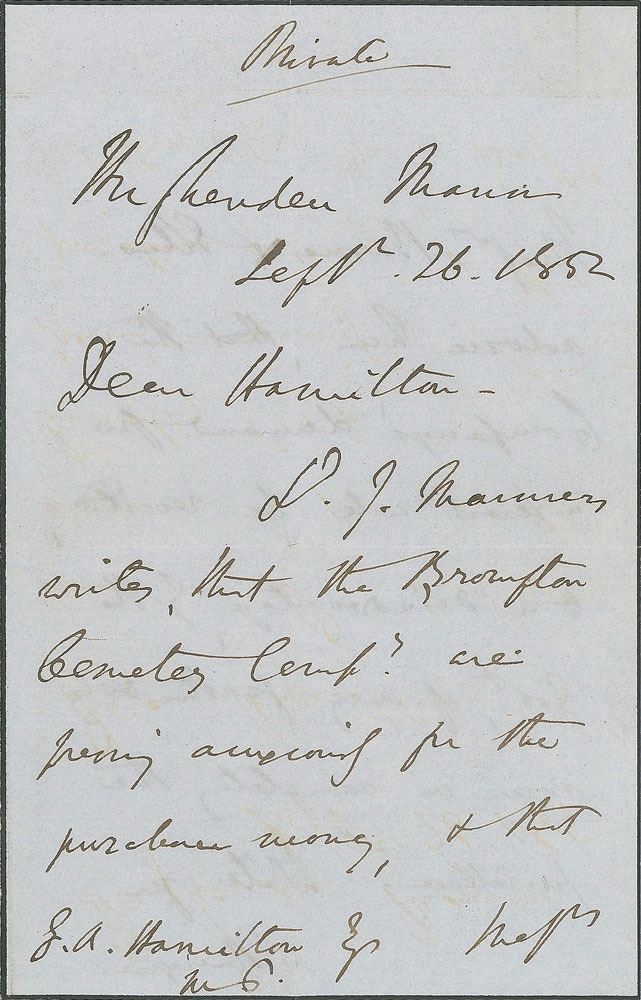 Private
Hughenden Manor
Septr. 26. 1852
Dear Hamilton -
Ld. J. Manners
writes, that the Brompton
Cemetery Compy. are
pressing anxiously for the
purchase money, & that
G. A. Hamilton Esq Messrs
M P.